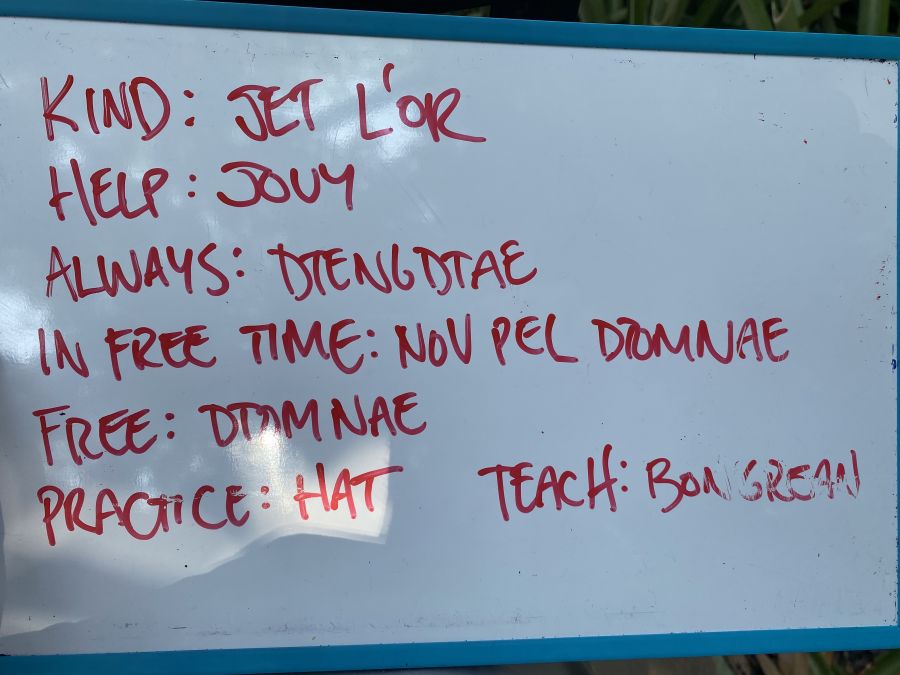 KIND: JET L'OR
HELP: JOUY
ALWAYS: DTENGDTAE
IN FREE TIME: NOV PEL DTOMNAE
FREE: DTOMNAE
PRACTICE: HAT TEACH: BONGREAN